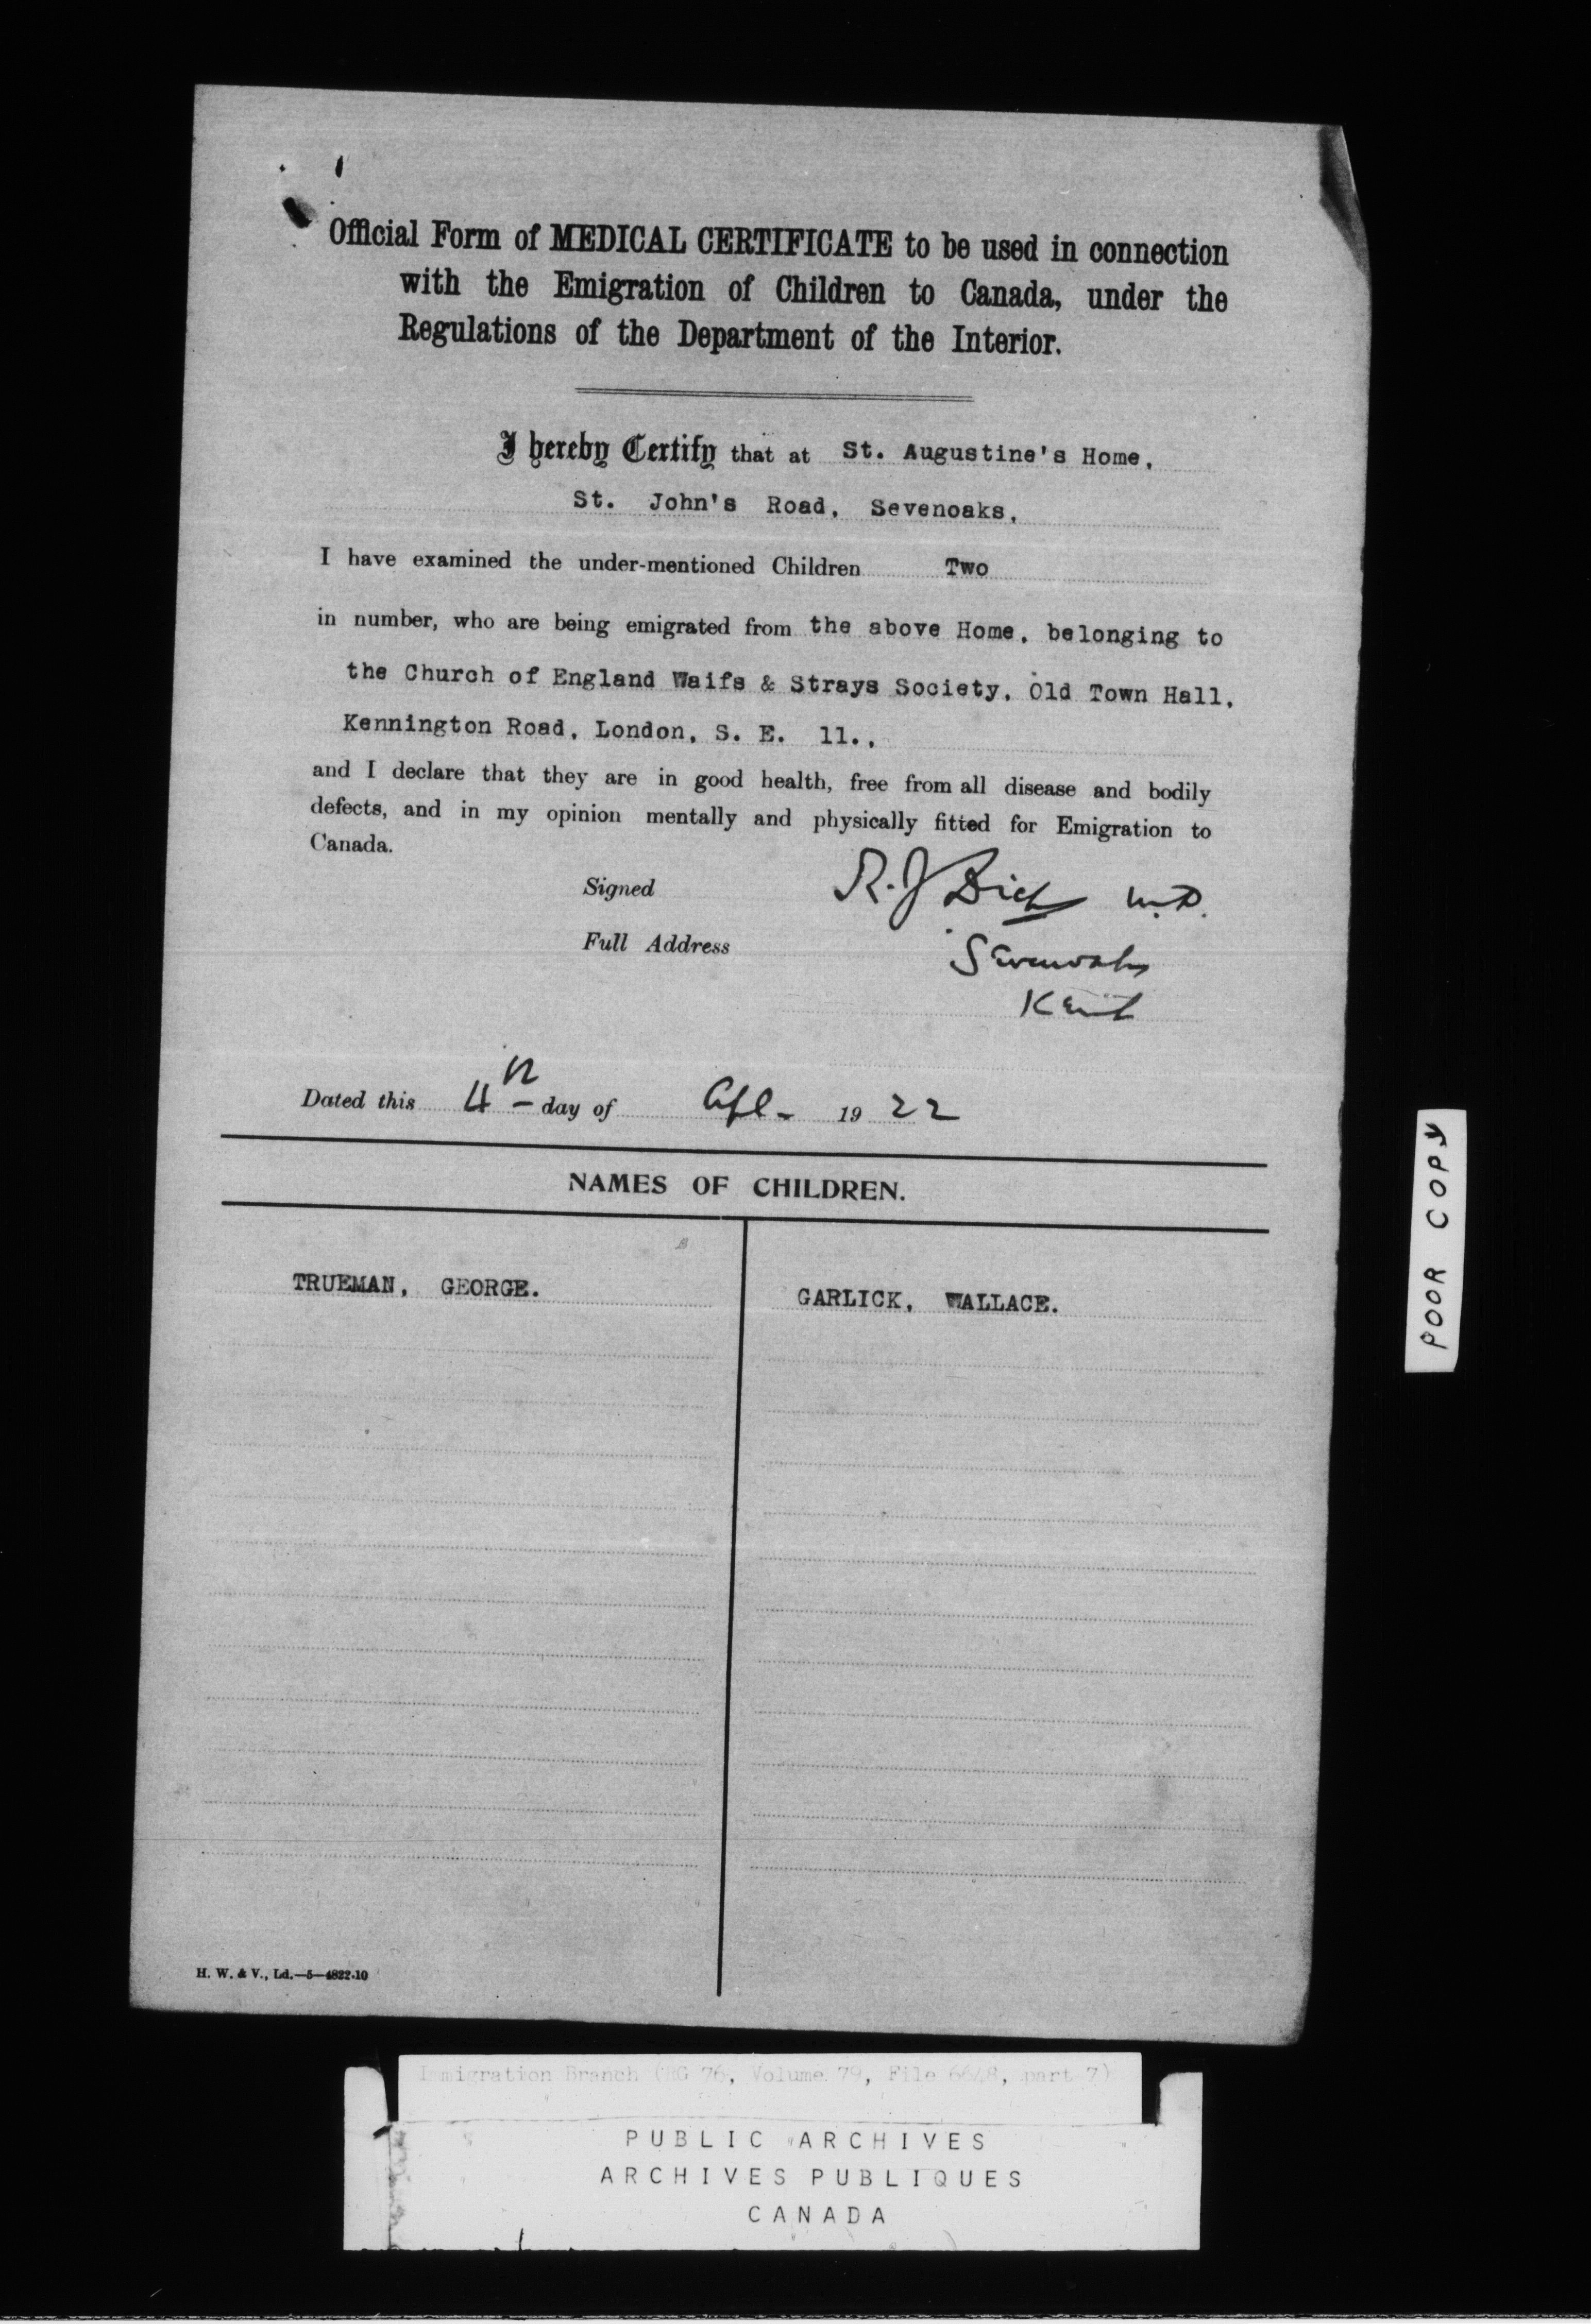 Official Form of MEDICAL CERTIFICATE to be used in connection
with the Emigration of Children to Canada, under the
Regulations of the Department of the Interior.
I hereby Certify that at St. Augustine's Home,
St. John's Road, Sevenoaks,
I have examined the under-mentioned Children Two
in number, who are being emigrated from the above Home, belonging to
the Church of England Waifs & Strays Society, Old Town Hall,
Kennington Road, London, S. E. 11.,
and I declare that they are in good health, free from all disease and bodily
defects, and in my opinion mentally and physically fitted for Emigration to
Canada.
Signed R. J M.D.
Full Address Sevenoaks
Kent
Dated this 4th day of Apl. 1922
NAMES OF CHILDREN.
TRUEMAN, GEORGE.
GARLICK, WALLACE.
H. W. & V., Ld.—5—4822.10
POOR COPY
Immigration Branch (RG 76, Volume 79, File 6648, part 7)
PUBLIC ARCHIVES
ARCHIVES PUBLIQUES
CANADA